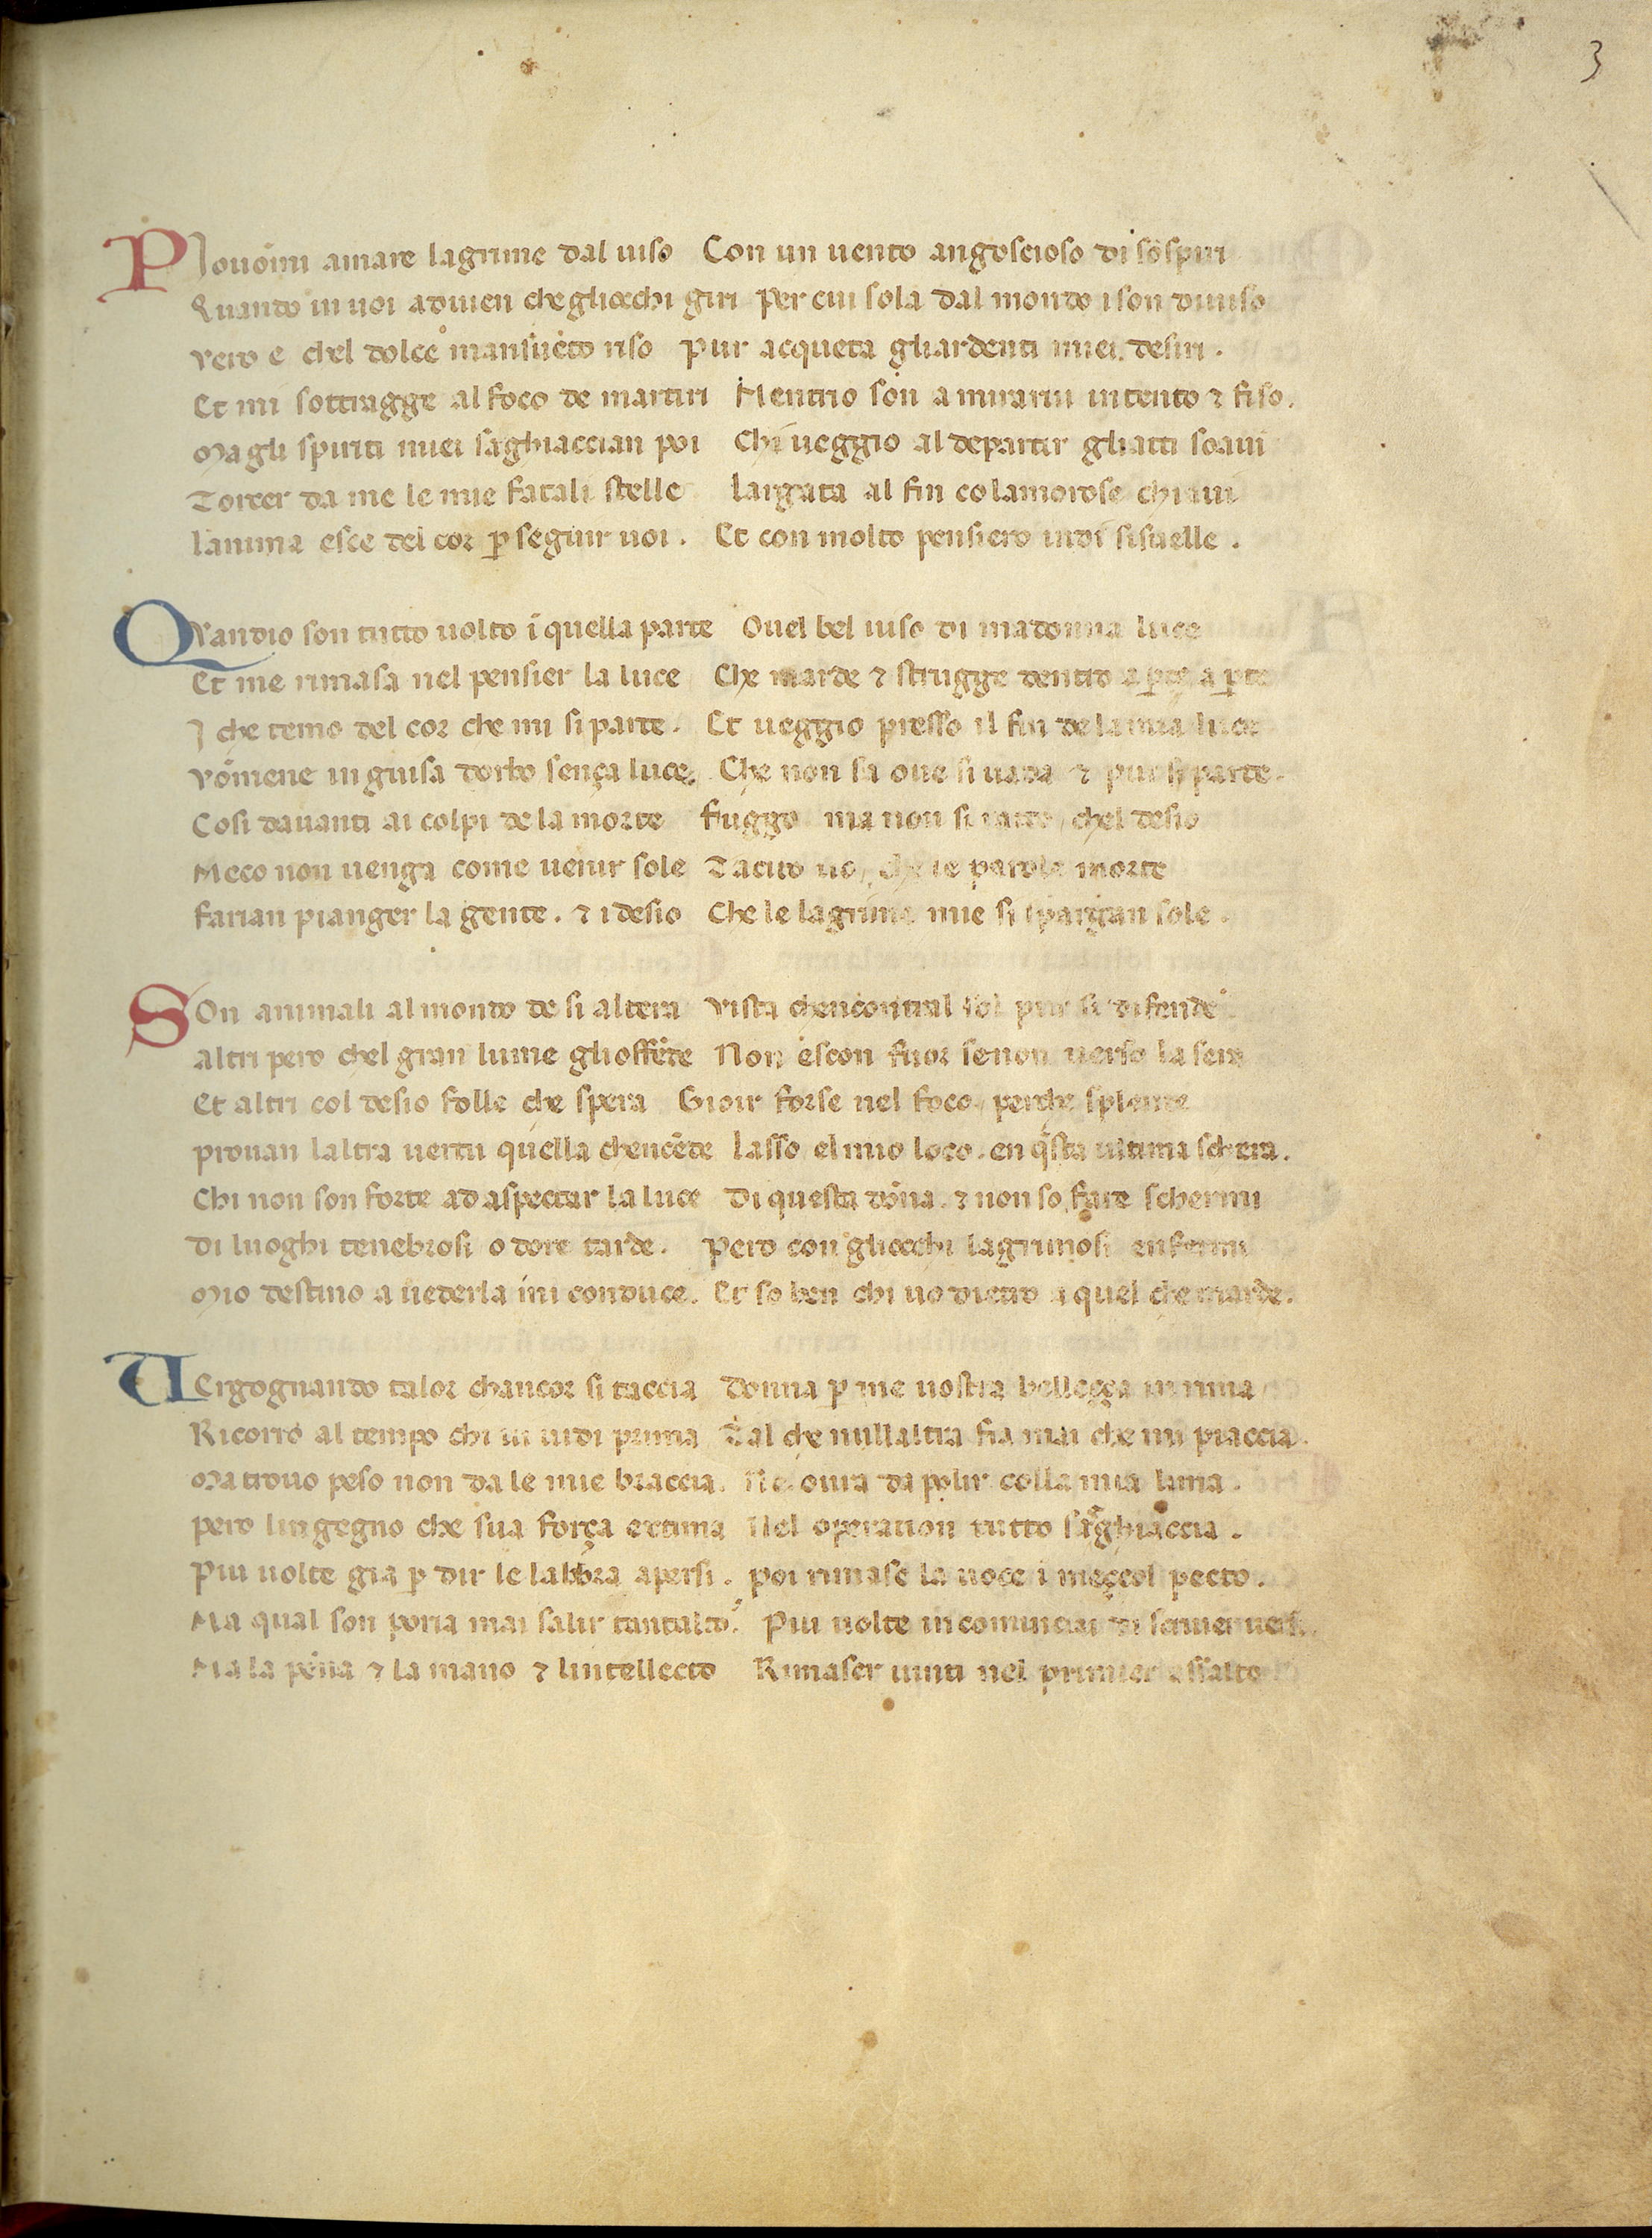 3
PIouomi amare lagrime dal uiso Con un uento angoscioso di sospiri
Quando in uoi adiuien che gliocchi giri Per cui sola dal mondo i son diuiso
Vero e chel dolce mansueto riso Pur acqueta gliardenti miei desiri.
Et mi sottragge al foco de martiri Mentrio son a mirarui intento ⁊ fiso.
Ma gli spiriti miei saghiaccian poi Chi ueggio al departir gliatti soaui
Torcer da me le mie fatali stelle Largata al fin co lamorose chiaui
Lanima esce del cor ꝑ seguir uoi. Et con molto pensiero indi sisuelle.
QVandio son tutto uolto ī quella parte Ouel bel uiso di madonna luce
Et me rimasa nel pensier la luce Che marde ⁊ strugge dentro a ꝑte a ꝑte
I che temo del cor che mi si parte. Et ueggio presso il fin de la mia luce
Vōmene in guisa dorbo sença luce. Che non sa oue si uada ⁊ pur si parte.
Cosi dauanti ai colpi de la morte Fuggo ma non si ratto chel desio
Meco non uenga come uenir sole Tacito uo, che le parole morte
Farian pianger la gente. ⁊ i desio Che le lagrime mie si spargan sole.
SOn animali al mondo de si altera Vista chencontral sol pur si difende
Altri pero chel gran lume glioffēde Non escon fuor senon uerso la sera
Et altri col desio folle che spera Gioir forse nel foco, perche splende
Prouan laltra uertu quella chencēde Lasso el mio loco. en q̄sta ultima schera.
Chi non son forte ad aspectar la luce Di questa dōna. ⁊ non so fare schermi
Di luoghi tenebrosi o dore tarde. Pero con gliocchi lagrimosi enfermi
Mio destino a uederla mi conduce. Et so ben chi uo dietro a quel che marde.
VErgognando talor chancor si taccia Donna ꝑ me uostra belleçça in rima
Ricorro al tempo chi ui uidi prima Tal che nullaltra fia mai che mi piaccia.
Ma trouo peso non da le mie braccia. Ne oura da polir colla mia lima.
Pero lingegno che sua força extima Nel operation tutto saghiaccia.
Piu uolte gia ꝑ dir le labbra apersi. Poi rimase la uoce ī meççol pecto.
Ma qual son poria mai salir tantalto. Piu uolte incominciai di scriuer uersi.
Ma la pēna ⁊ la mano ⁊ lintellecto Rimaser uinti nel primier assalto